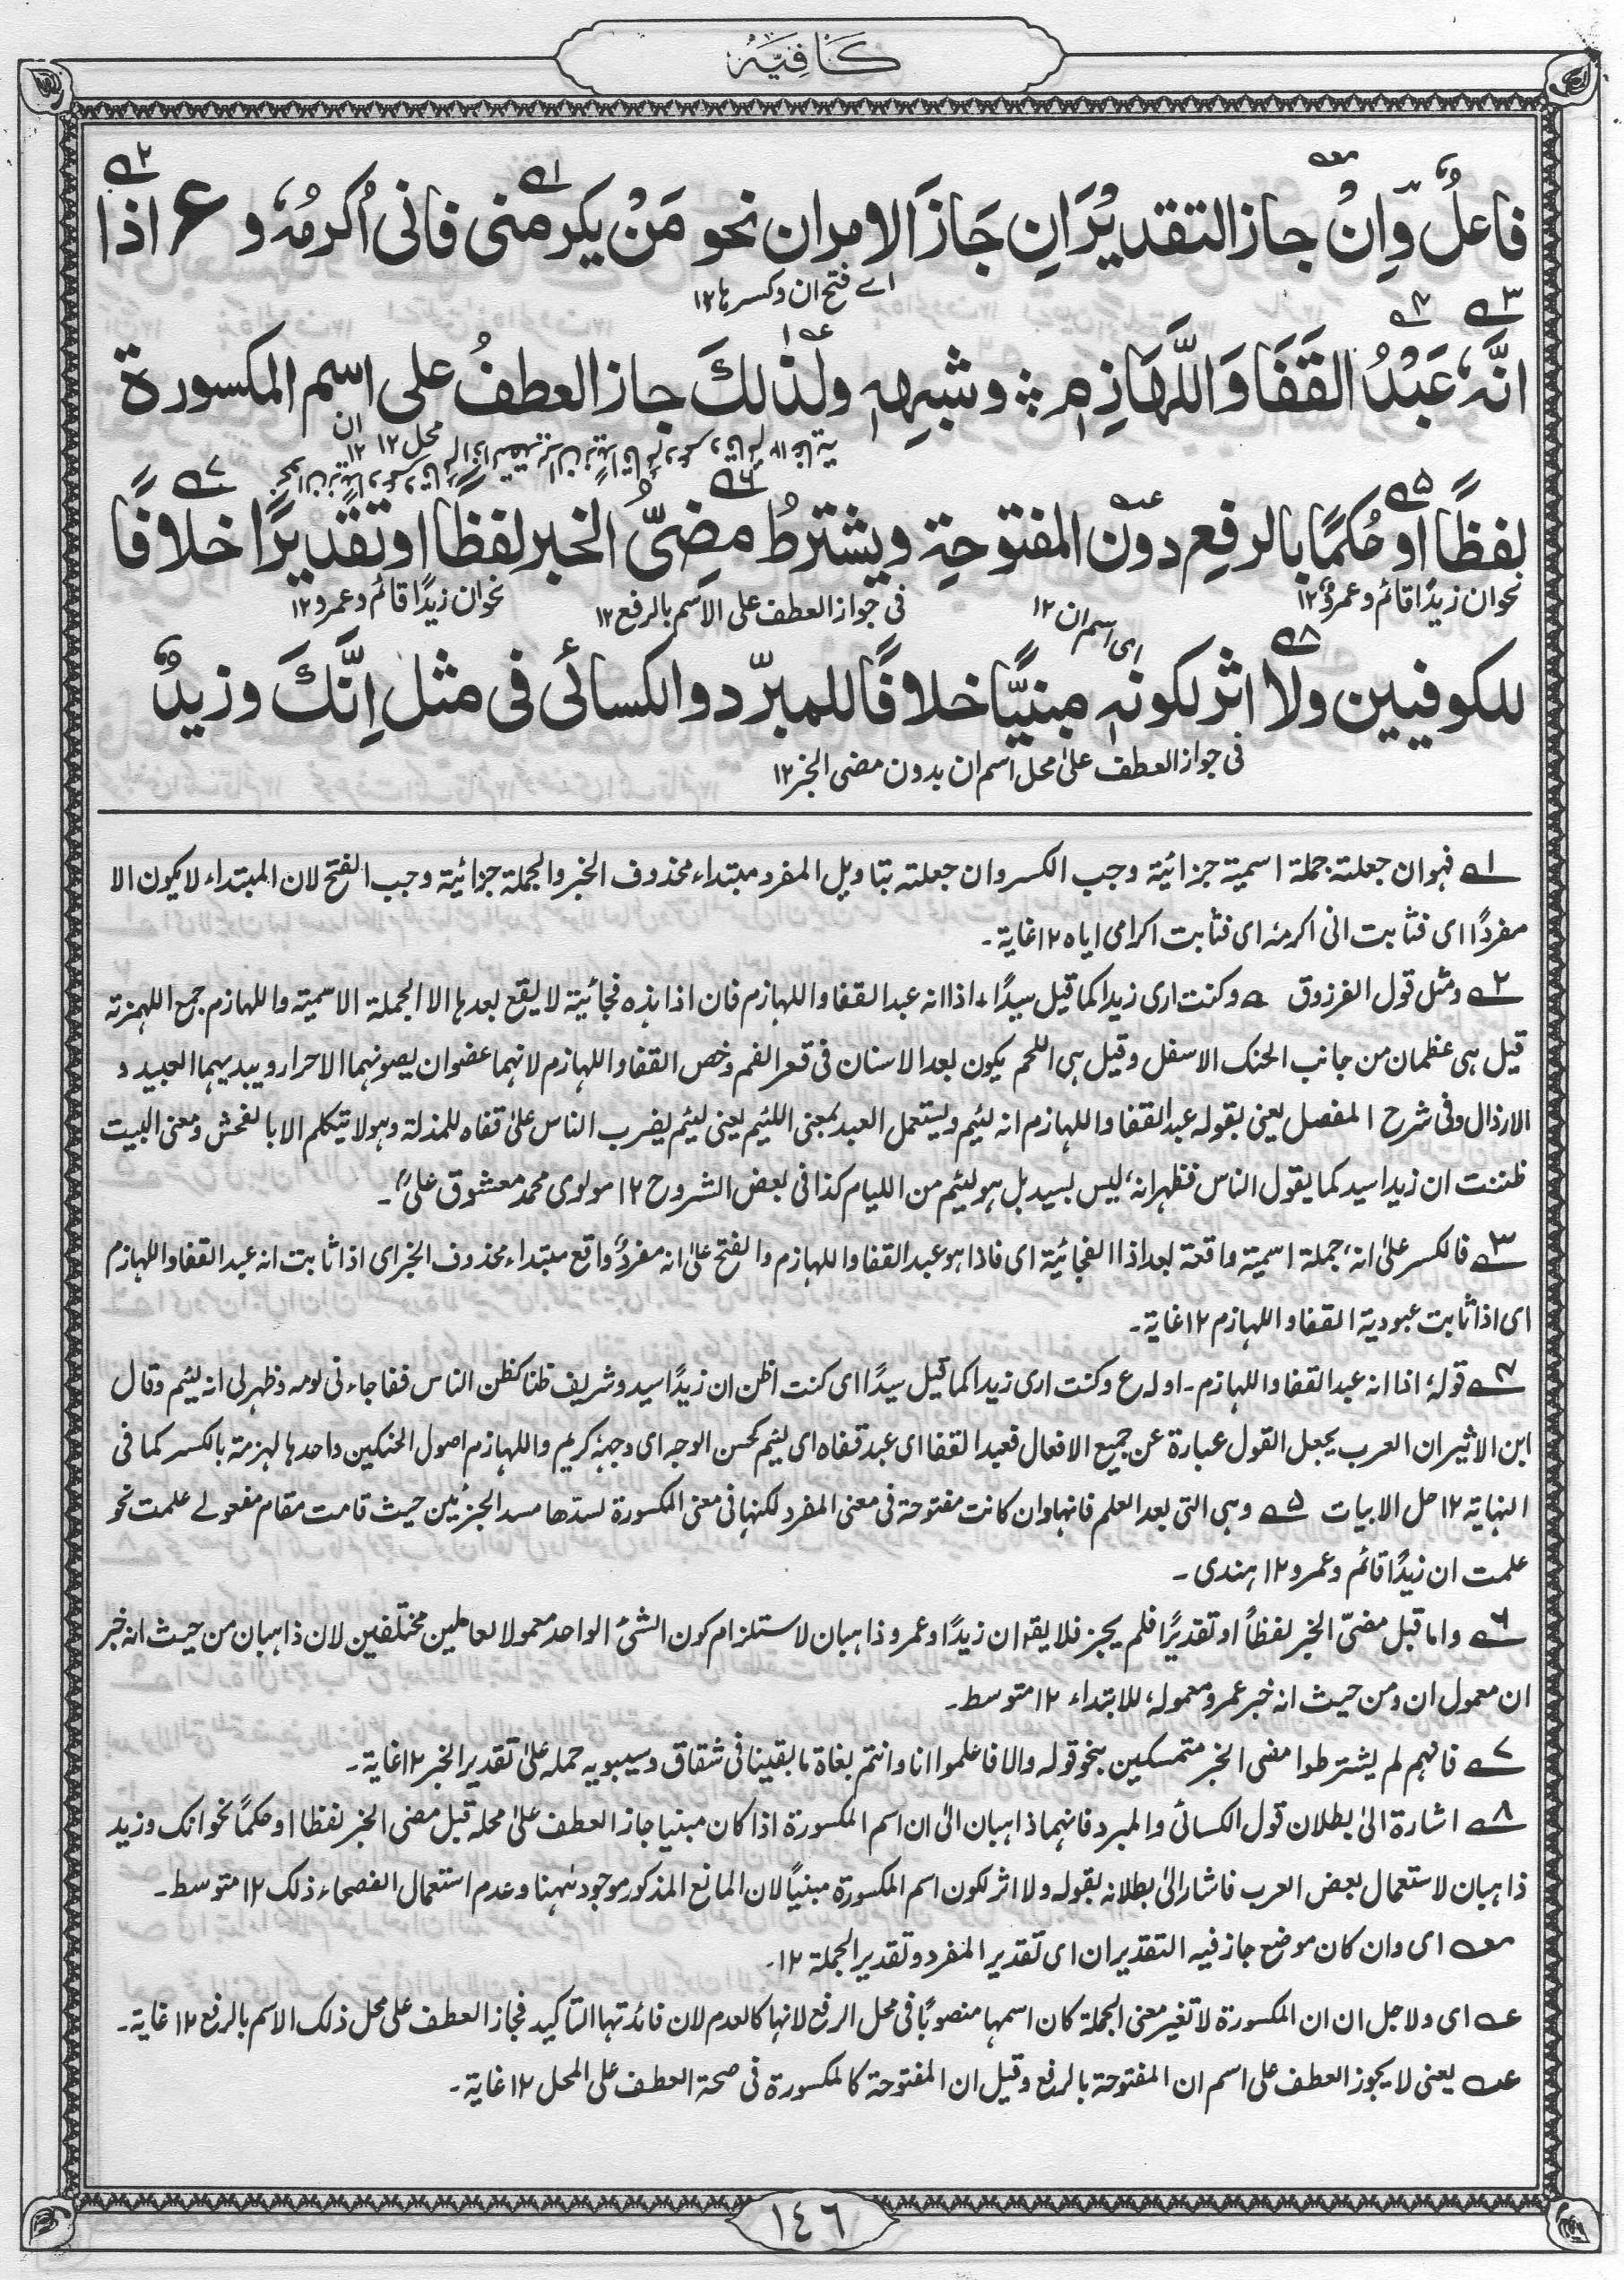 كَافِيَه
فاعلٌ وَاِنْ جاز التقديْرَانِ جَازَ الامران نحو مَنْ يكرمنى فانى اُكرمُهٗ و ع اذا
اے فتح ان وكسرها ١٢
انَّهٗ عَبْدُ القَفَا وَاللَّهَازِمِ ؞ وشبهِهٖ ولذلكَ جاز العطفُ على اسم المكسورة
محل ١٢ ان ١٢
لفظًا او حُكمًا بالرفعِ دون المفتوحةِ ويشترطُ مضِىُّ الخبر لفظًا او تقديرًا خلافًا
نحو ان زيدًا قائم وعمرو ١٢ اى اسم ان ١٢ فى جواز العطف على الاسم بالرفع ١٢ نحو ان زيدًا قائم وعمرو ١٢
للكوفيين ولا اثر لكونهٖ مبنيًّا خلافًا للمبرّد والكسائى فى مثل اِنَّكَ وزيدٌ
فى جواز العطف علىٰ محل اسم ان بدون مضى الخبر ١٢
١ فهو ان جعلته جملة اسمية جزائية وجب الكسر وان جعلته بتاويل المفرد مبتداء محذوف الخبر والجملة جزائية وجب الفتح لان المبتداء لا يكون الا
مفردًا اى فثابت انى اكرمه اى فثابت اكرامى اياه ١٢ غاية۔
٢ ومثل قول الفرزوق وكنت ارى زيدا كما قيل سيدًا ٭ اذا انه عبد القفا واللهازم فان اذا هذه فجائية لا يقع بعدها الا الجملة الاسمية واللهازم جمع اللهزمة
قيل هى عظمان من جانب الحنك الاسفل وقيل هى اللحم يكون بعد الاسنان فى قعر الفم وخص القفا واللهازم لانهما عضوان يصونهما الاحرار ويبديهما العبيد و
الارذال وفى شرح المفصل يعنى بقوله عبد القفا واللهازم انه لئيم ويستعمل العبد بمعنى اللئيم يعنى لئيم يضرب الناس علىٰ قفاه للمذلة وهو لا يتكلم الا بالفحش ومعنى البيت
ظننت ان زيدا سيد كما يقول الناس فظهر انهٗ ليس بسيد بل هو لئيم من الليام كذا فى بعض الشروح ١٢ مولوى محمد معشوق علىؒ۔
٣ فالكسر علىٰ انهٗ جملة اسمية واقعة بعد اذا الفجائية اى فاذا هو عبد القفا واللهازم والفتح علىٰ انه مفردٌ واقع مبتداء محذوف الخبر اى اذا ثابت انه عبد القفا واللهازم
اى اذا ثابت عبودية القفا واللهازم ١٢ غاية۔
٤ قولهٗ اذا انه عبد القفا واللهازم۔ اوله ع وكنت ارى زيدا كما قيل سيدًا اى كنت اظن ان زيدًا سيد وشريف ظنا كظن الناس ففاجاءنى لومه وظهر لى انه لئيم وقال
ابن الاثير ان العرب يجعل القول عبارة عن جميع الافعال فعبد القفا اى عبد قفاه اى لئيم كحسن الوجه اى وجهه كريم واللهازم اصول الحنكين واحدها لهزمة بالكسر كما فى
النهاية ١٢ حل الابيات ٥ وهى التى بعد العلم فانها وان كانت مفتوحة فى معنى المفرد لكنها فى معنى المكسورة لسدها مسد الجزئين حيث قامت مقام مفعولے علمت نحو
علمت ان زيدًا قائم وعمرو ١٢ هندى۔
٦ واما قبل مضىّ الخبر لفظاً او تقديرًا فلم يجز فلا يقال ان زيدًا وعمرو ذاهبان لاستلزام كون الشئ الواحد معمولا لعاملين مختلفين لان ذاهبان من حيث انه خبر
ان معمول ان ومن حيث انه خبر عمرو معمولهٗ للابتداء ١٢ متوسط۔
٧ فانهم لم يشترطوا مضى الخبر متمسكين بنحو قوله والا فاعلموا انا وانتم بغاة ما بقينا فى شقاق وسيبويه حمله علىٰ تقدير الخبر ١٢ غاية۔
٨ اشارة الىٰ بطلان قول الكسائى والمبرد فانهما ذاهبان الىٰ ان اسم المكسورة اذا كان مبنيا جاز العطف علىٰ محله قبل مضى الخبر لفظا او حكمًا نحو انك وزيد
ذاهبان لاستعمال بعض العرب فاشار الىٰ بطلانه بقوله ولا اثر لكون اسم المكسورة مبنيًا لان المانع المذكور موجود ههنا وعدم استعمال الفصحاء ذلك ١٢ متوسط۔
اى وان كان موضع جاز فيه التقديران اى تقدير المفرد وتقدير الجملة ١٢۔
عه اى ولاجل ان ان المكسورة لا تغير معنى الجملة كان اسمها منصوبًا فى محل الرفع لانها كالعدم لان فائدتها التاكيد فجاز العطف على محل ذلك الاسم بالرفع ١٢ غاية۔
عه يعنى لا يجوز العطف على اسم ان المفتوحة بالرفع وقيل ان المفتوحة كالمكسورة فى صحة العطف على المحل ١٢ غاية۔
١٤٦